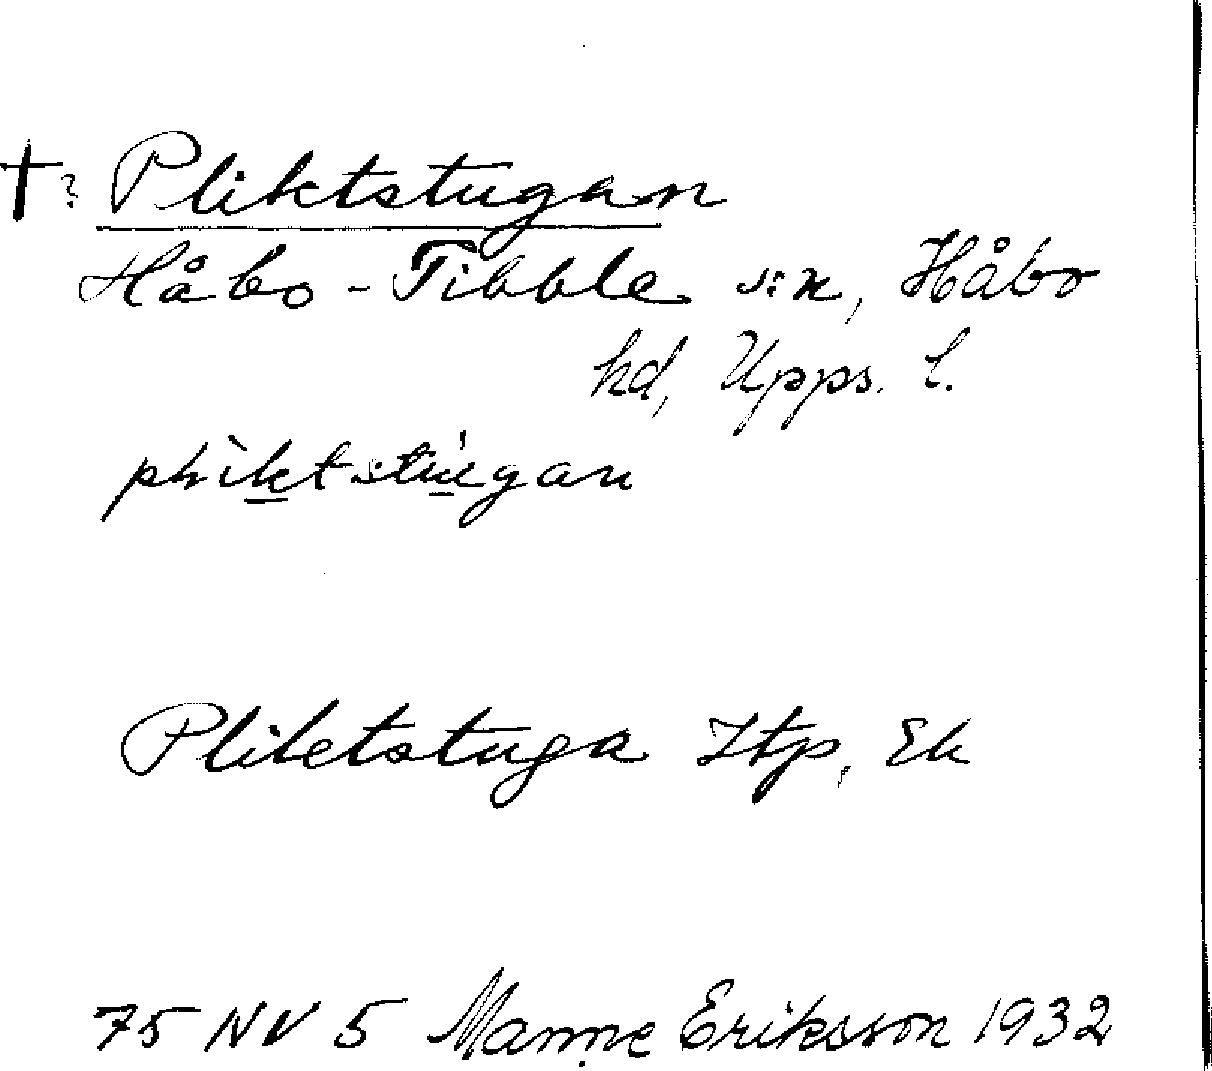 †? Pliktstugan
Håbo-Tibble s:n, Håbo
hd, Upps. l.
pliktstugan
Pliktstuga Jtp, Ek
75 NV 5 Manne Eriksson 1932